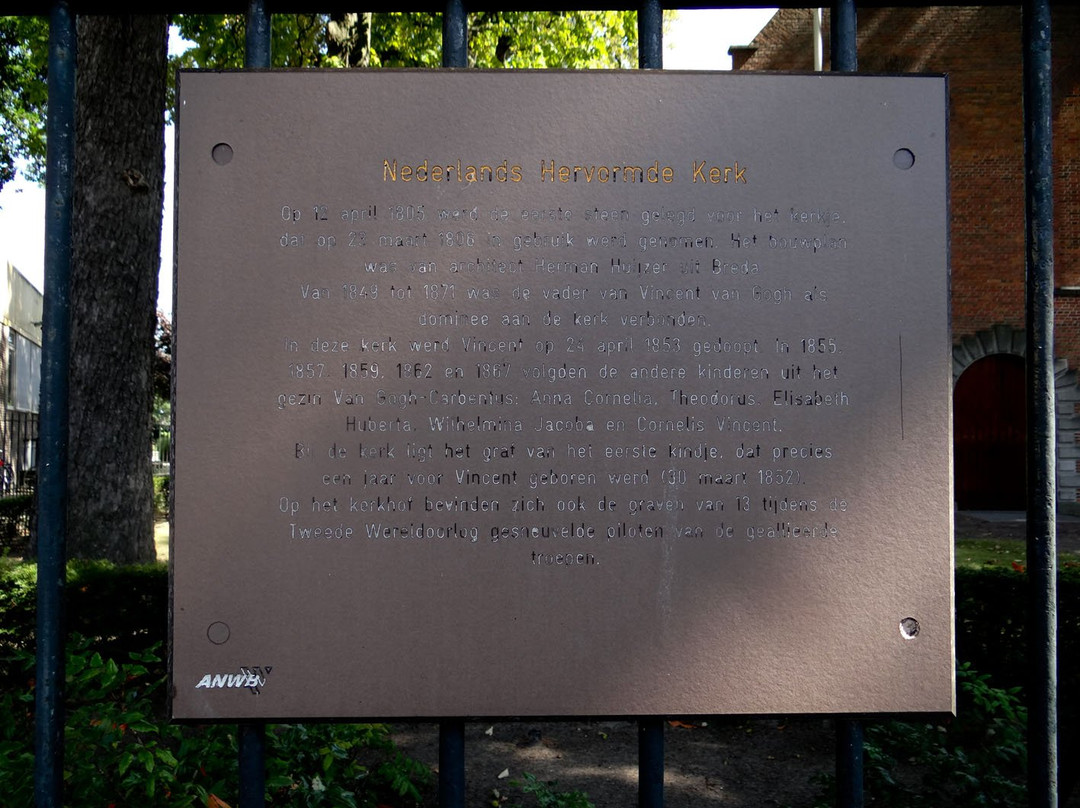 Nederlands Hervormde Kerk
Op 12 april 1805 werd de eerste steen gelegd voor het kerkje,
dat op 23 maart 1806 in gebruik werd genomen. Het bouwplan
was van architect Herman Huijzer uit Breda.
Van 1849 tot 1871 was de vader van Vincent van Gogh als
dominee aan de kerk verbonden.
In deze kerk werd Vincent op 24 april 1853 gedoopt. In 1855,
1857, 1859, 1862 en 1867 volgden de andere kinderen uit het
gezin Van Gogh-Carbentus: Anna Cornelia, Theodorus, Elisabeth
Huberta, Wilhelmina Jacoba en Cornelis Vincent.
Bij de kerk ligt het graf van het eerste kindje, dat precies
een jaar voor Vincent geboren werd (30 maart 1852).
Op het kerkhof bevinden zich ook de graven van 13 tijdens de
Tweede Wereldoorlog gesneuvelde piloten van de geallieerde
troepen.
ANWB